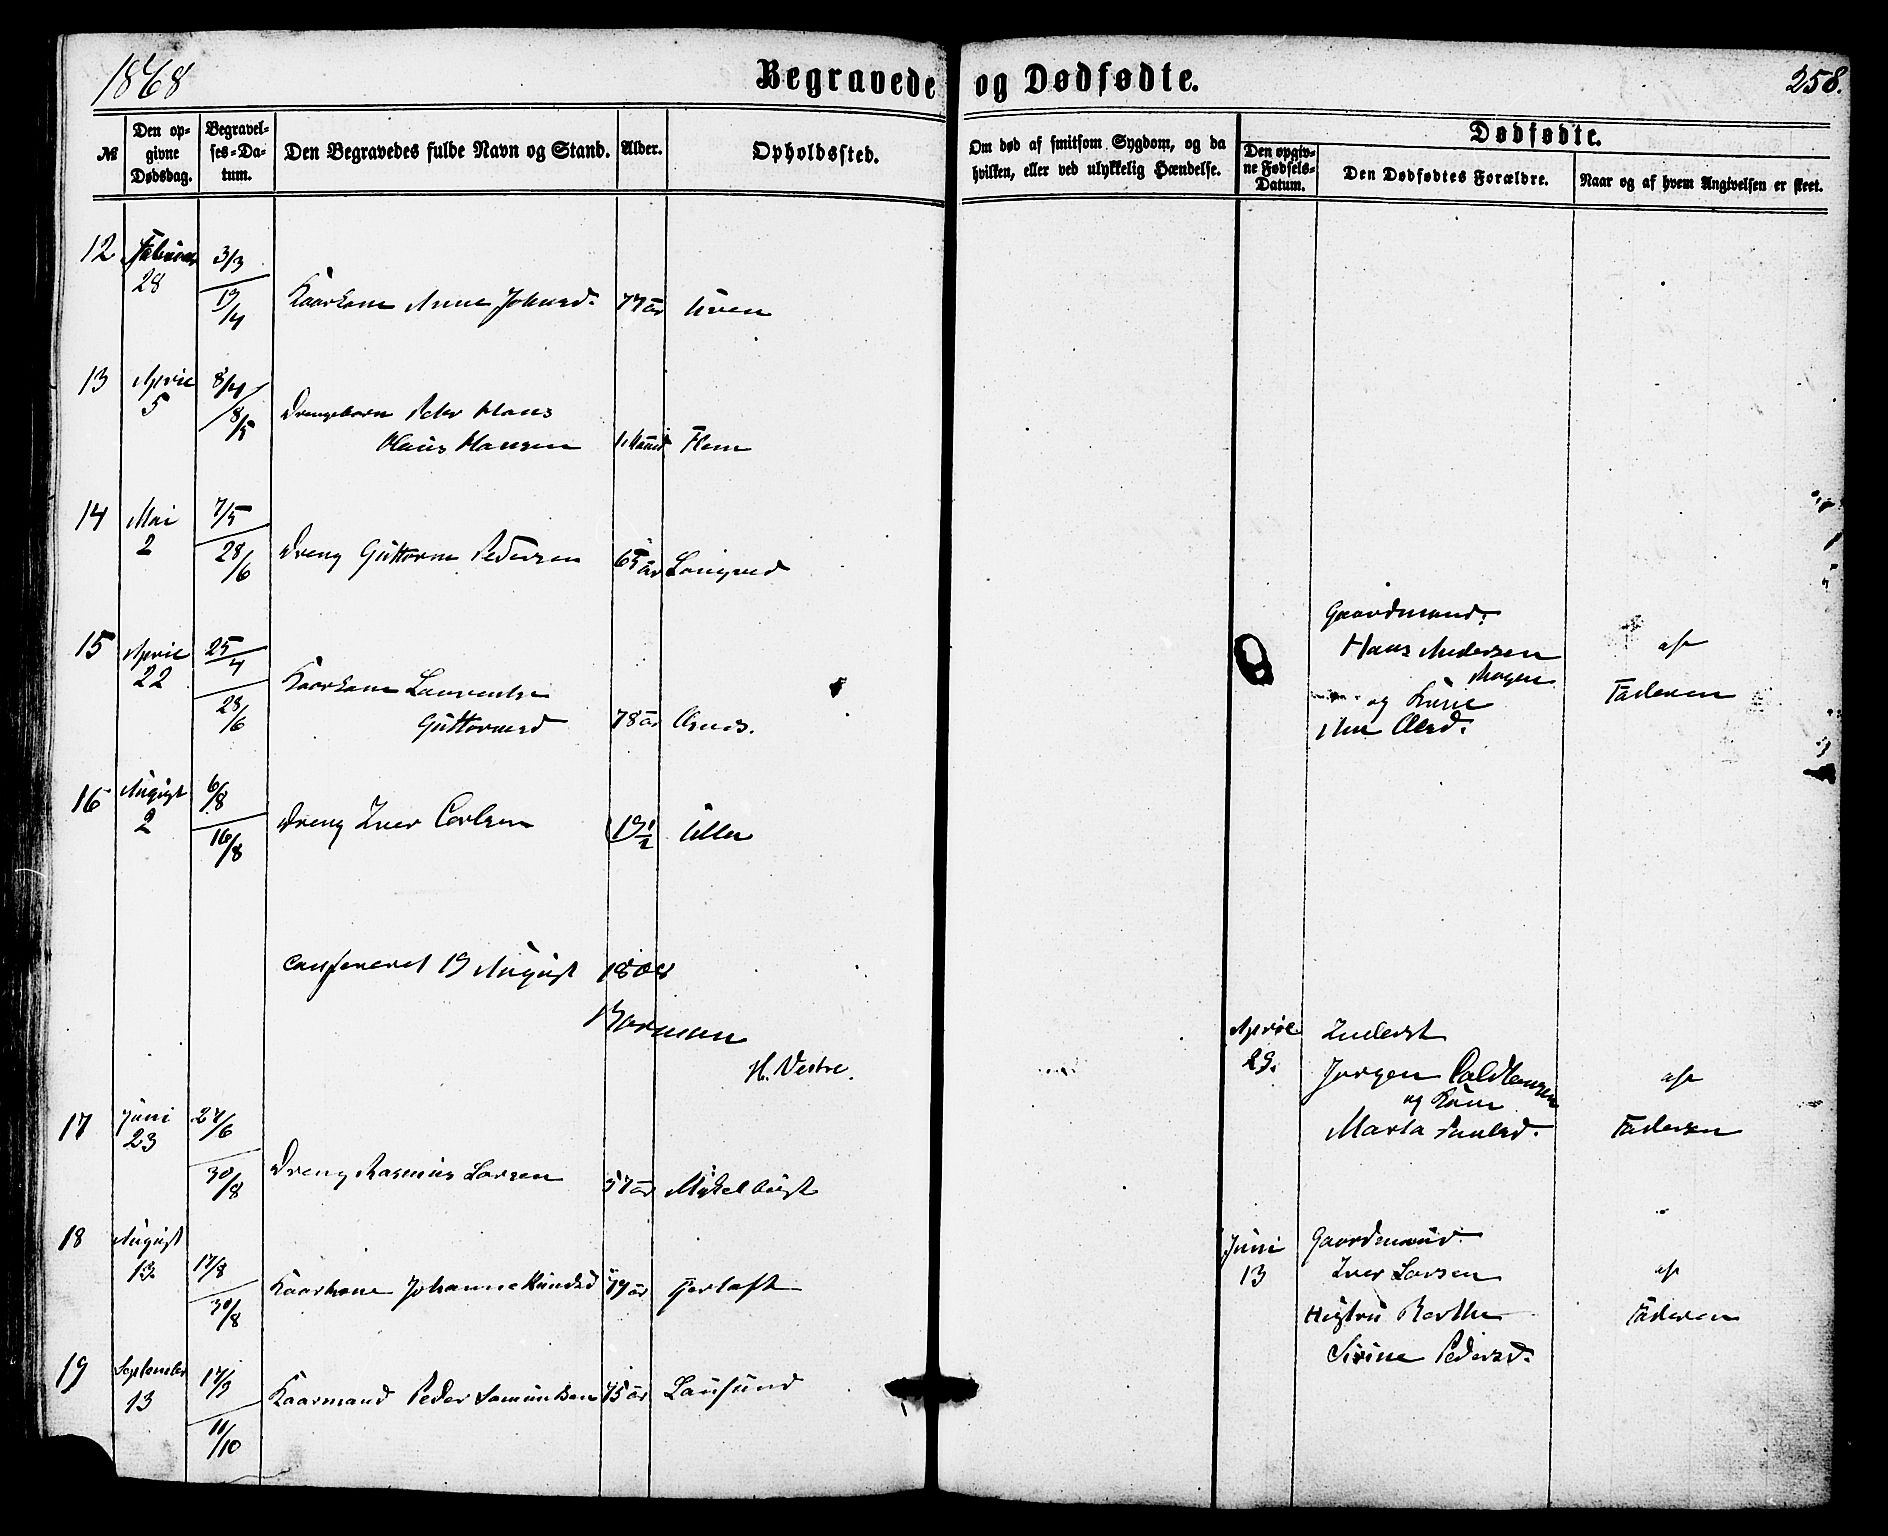 1868
Begravede og Dødfødte.
258.
№
Den opgivne Dødsdag.
Begravelses-Datum.
Den Begravedes fulde Navn og Stand.
Alder.
Opholdssted.
Om død af smitsom Sygdom, og da hvilken, eller ved ulykkelig Hændelse.
Dødfødte.
Den opgivne Fødsels-Datum.
Den Dødfødtes Forældre.
Naar og af hvem Angivelsen er skeet.
12 Februar 28 3/3 19/4 Kaarkone Anne Johnsd. 77 år
13 April 5 8/4 8/5 Drengebarn Peder Hans
Claus Hansen 1 Maaned Flem
14 Mai 2 7/5 28/6 Dreng Guttorm Pedersen 65 år Longved
15 April 22 25/4 28/6 Kaarkone Laurentse
Guttormsd 78 år Osnes.
16 August 2 6/8 16/8 Dreng Iver Carlsen 19 1/2 Ulla
Confereret 19 August 1868
Borman
H. Vestre.
17 Juni 23 27/6 30/8 Dreng Rasmus Larsen 57 år Myklebust
18 August 13. 17/8 30/8 Kaarkone Johanne Knudsd 79 år
19 September 13 17/9 11/10 Kaarmand Peder Samundsen 75 år Longsund
Gaardmand.
Hans Andersen
Mogen
og Kone
Ane Olesd.
af
Faderen
April 29. Inderst
Jørgen
og Kone
Marta Paulsd.
af
Faderen
Juni 13 Gaardmand.
Iver Larsen
Hustru Berthe
Sirine Pedersd.
af
Faderen